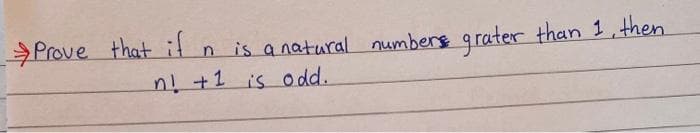 ⇒Prove that if n is a natural numbers grater than 1, then
n! +1 is odd.